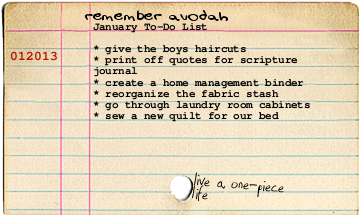 remember avodah
January To-Do List
012013
* give the boys haircuts
* print off quotes for scripture
journal
* create a home management binder
* reorganize the fabric stash
* go through laundry room cabinets
* sew a new quilt for our bed
live a one-piece
life